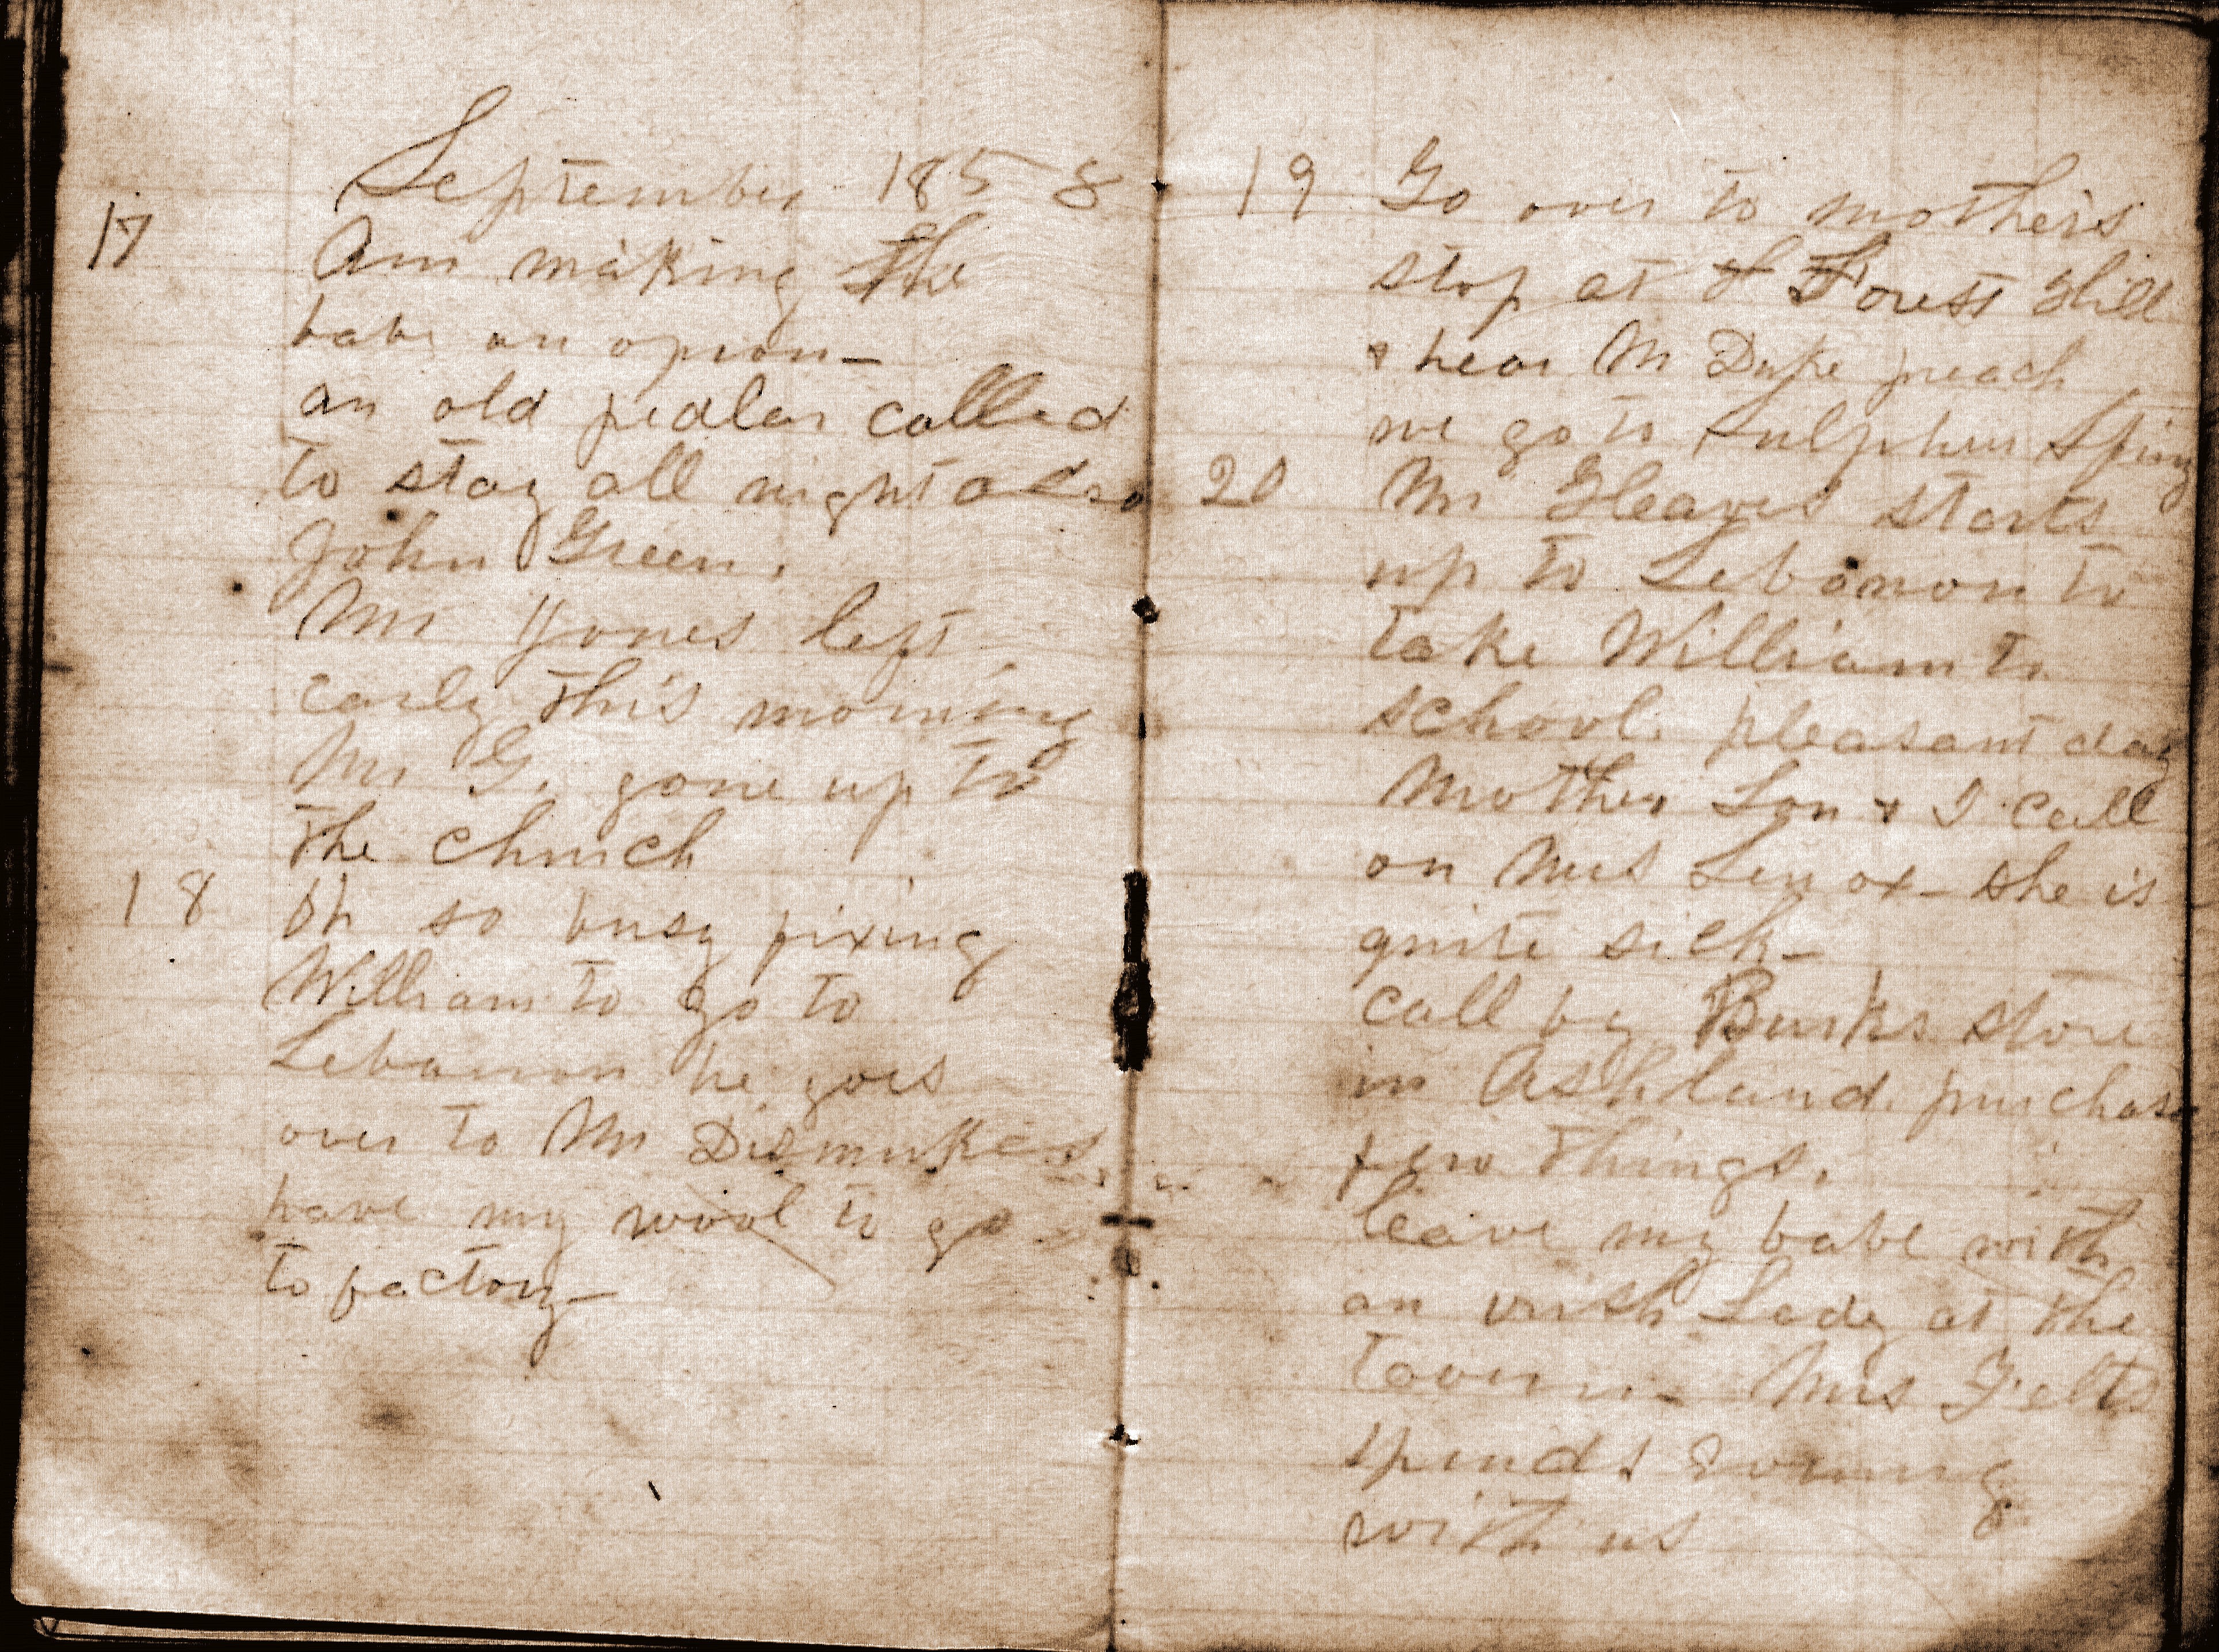 September 1858
17 Am making the
babe an apron—
an old pedlar called
to stay all night also
John Green.
Mr Jones left
early this morning
Mr G. gone up to
the church
18 Oh so busy fixing
William to go to
Lebanon he goes
over to Mr Dismukes
have my wool to go
to factory—
19 Go over to mothers
stop at F Forest Hill
& hear Mr Duke preach
we go to Sulphur Spring
20 Mr Gleaves starts
up to Lebanon to
take William to
school. pleasant day
Mother Lon & I call
on Mrs Lenox— she is
quite sick—
call by Burks store
in Ashland. purchase
few things.
leave my babe with
an irish Lady at the
tavern— Mrs Felts
spends evening
with us